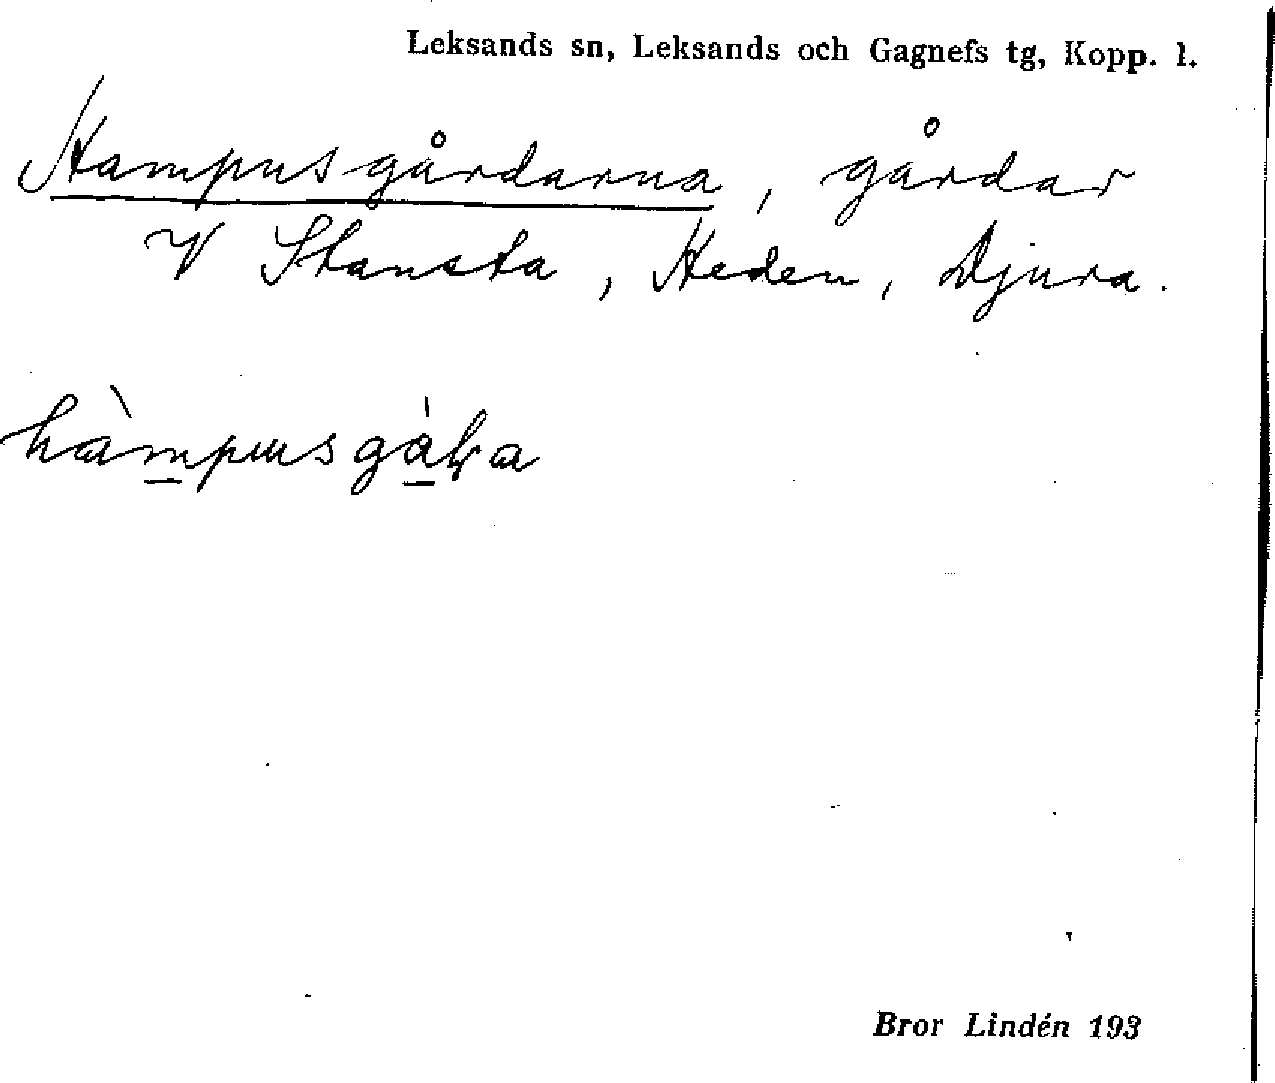 Leksands sn, Leksands och Gagnefs tg, Kopp. l.
Hampusgårdarna, gårdar
V Stansta, Heden, Djura.
hàmpusgàɽa
Bror Lindén 193